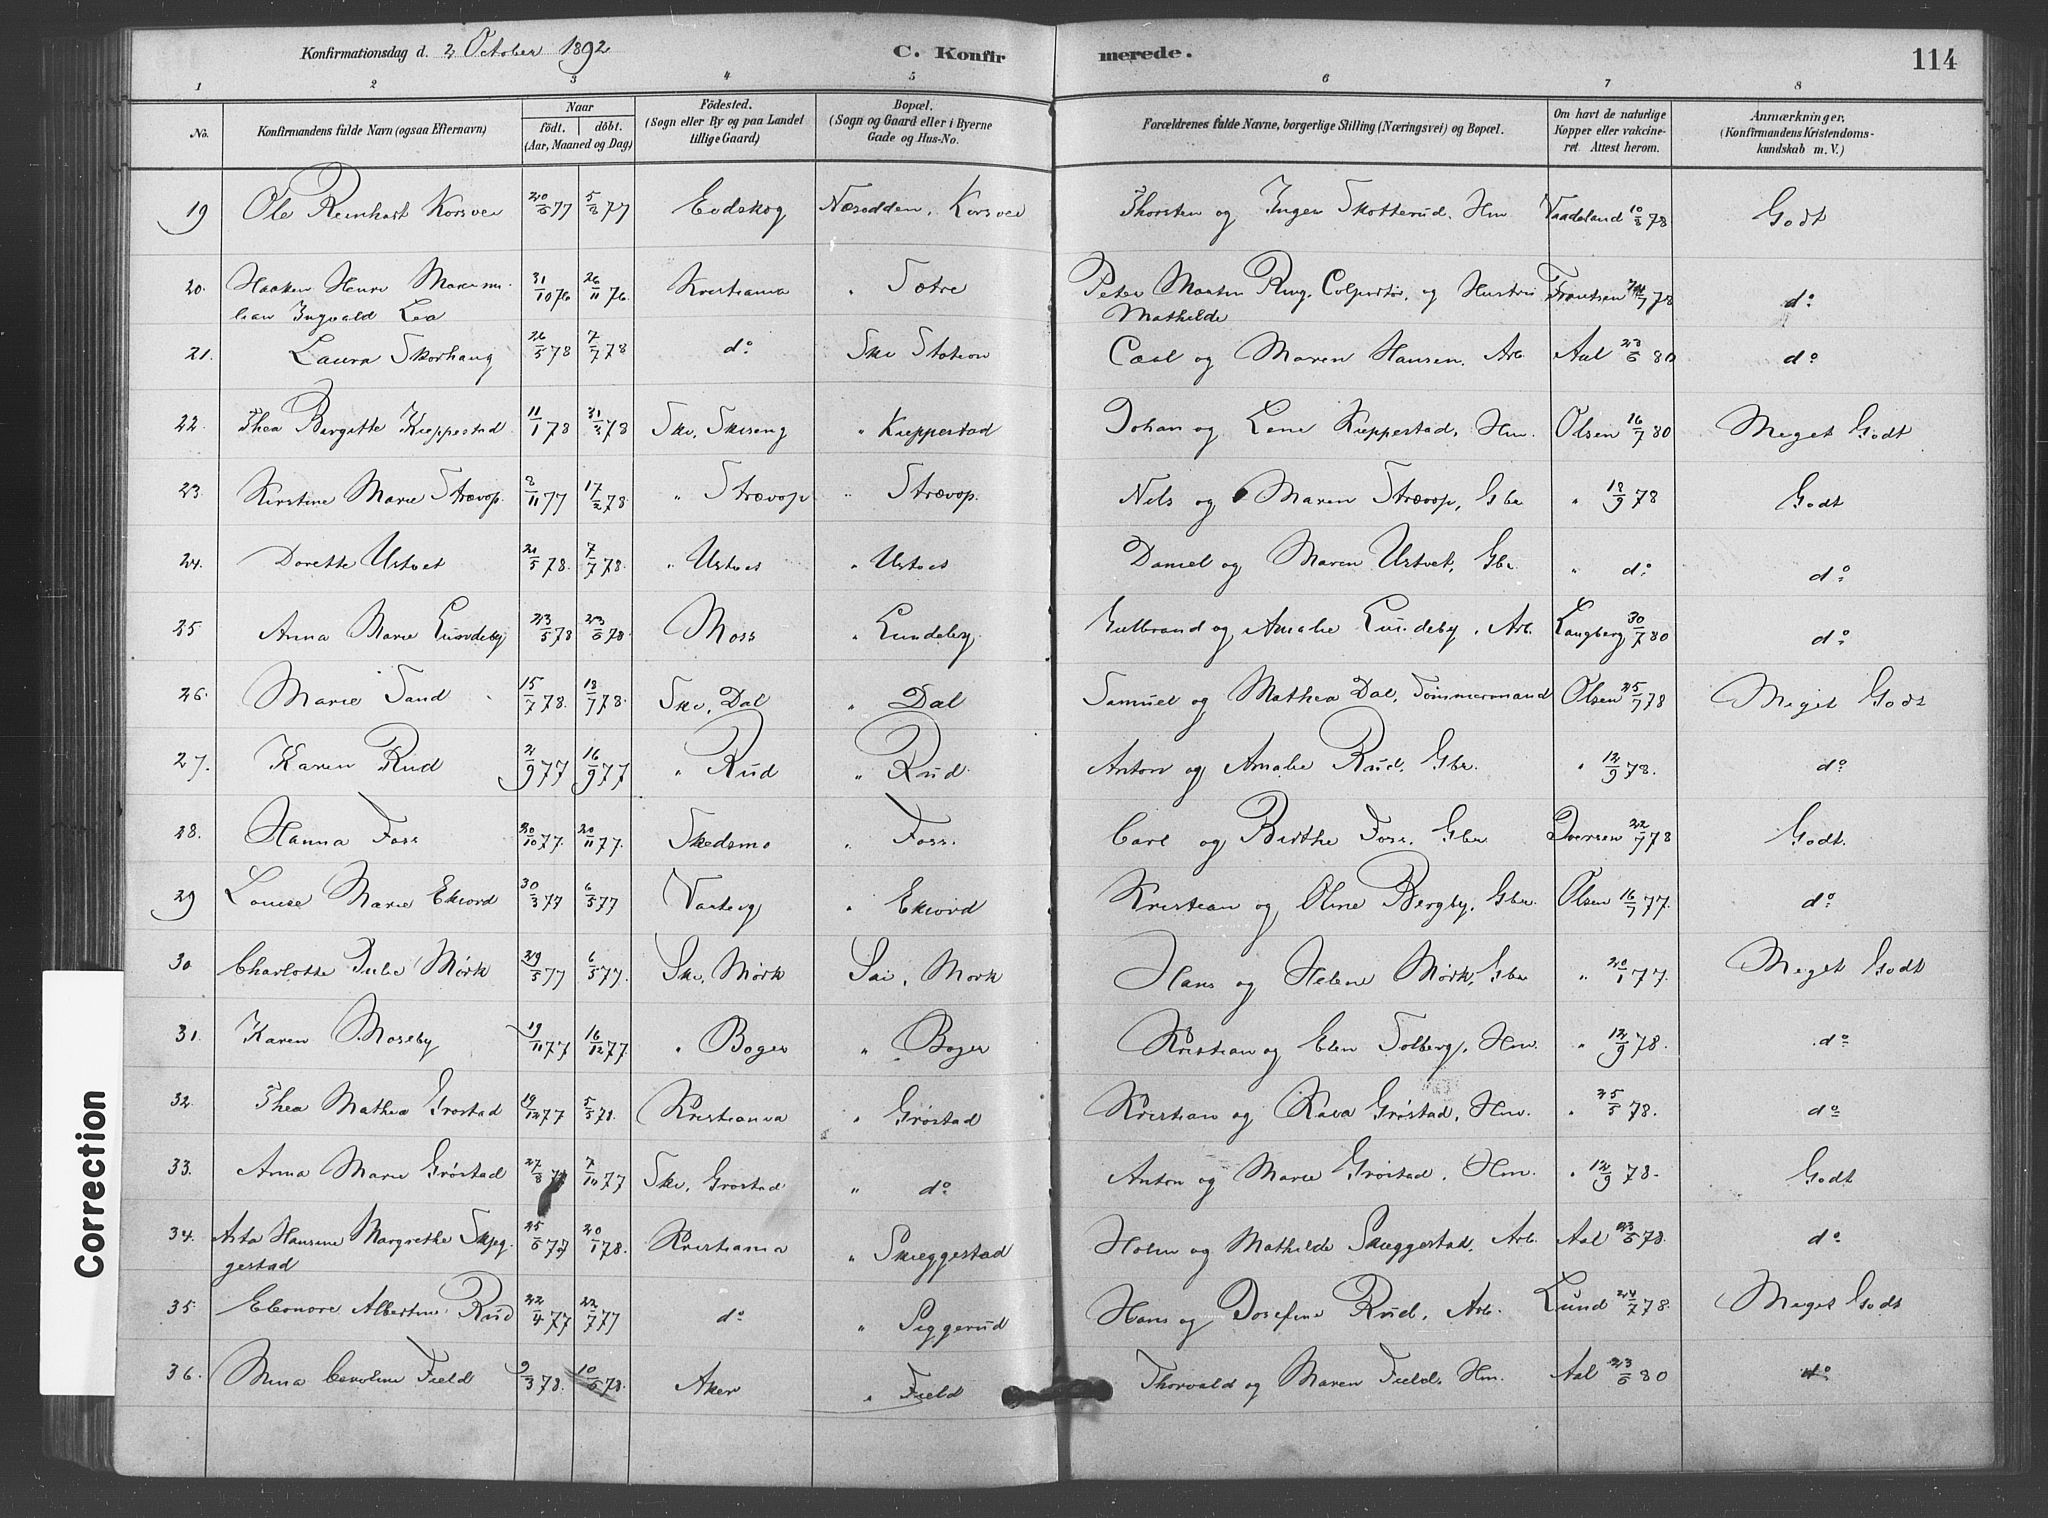 Konfirmationsdag d. 2 October 1892 C. Konfirmerede. 114
1 2 3 4 5 6 7 8
No. Konfirmandens fulde Navn (ogsaa Efternavn) Naar født. døbt. (Aar, Maaned og Dag) Födested. (Sogn eller By og paa Landet tillige Gaard) Bopæl. (Sogn og Gaard eller i Byerne Gade og Hus-No. Forældrenes fulde Navne, borgerlige Stilling (Næringsvei) og Bopæl. Om havt de naturlige Kopper eller vakcineret. Attest herom. Anmærkninger. (Konfirmandens Kristendomskundskab m. V.)
19 Ole Reinhart Korsvei 20/6 77 5/8 77 Eidskog Næsodden, Korsvei Thorsten og Inger Skotterud, Hm Vaadeland 10/8 78 Godt
20. Haaken Henri Maximilian Ingvald Lea 31/10 76 26/11 76. Kristiania " Sætre Peter Martin Ring, Colportør, og Hustru Mathilde Frantsen 78 do
21. Laura Skorhaug 26/5 78 7/7 78 do Ski Station Carl og Maren Hansen, Arb. Aal 23/6 80 do
22. Thea Birgitte Kieppestad 11/1 78 31/3 78 Ski, Skiseng " Kieppestad Johan og Lene Kieppestad, Hm. Olsen 16/7 80 Meget Godt
23. Kirstine Marie Strævop. 8/11 77 17/2 78. " Strævop " Strævop. Nils og Maren Strævop, Gbr " 18/9 78 Godt
24. Dorette Ustvet 21/5 78. 7/7 78. " Ustvet " Ustvet Daniel og Maren Ustvet, Gbr. " do do
25 Anna Marie Lundeby 23/5 78 23/6 78. Moss " Lundeby. Gulbrand og Amalie Lundeby, Arb. Langberg 30/7 80 do
26. Marie Sand 15/7 78. 18/7 78. Ski, Dal " Dal Samuel og Mathea Dal, Tømmermand Olsen 25/7 78 Meget Godt
27. Karen Rud 2/9 77 16/9 77 " Rud " Rud. Anton og Amalie Rud, Gbr. " 12/9 78. do
28. Hanna Foss 20/10 77. 20/11 77. Skedsmo " Foss. Carl og Birthe Foss, Gbr Iversen 22/7 78 Godt.
29 Louise Marie Ekiord 30/3 77 6/5 77 Varteig " Ekiord Kristian og Oline Bergby, Gbr. Olsen 16/7 77. do
30 Charlotte Julie Mørk 29/3 77 6/5 77. Ski, Mørk Ski, Mørk Hans og Helene Mørk, Gbr " 20/1 77. Meget Godt
31. Karen Moseby 19/11 77 16/12 77. " Boger " Boger Kristian og Elen Solberg, Hm. " 12/9 78. do
32. Thea Mathea Grøstad 19/12 77 5/5 78. Kristiania " Grøstad Kristian og Kaia Grøstad, Hm. " 25/5 78. do
33. Anna Marie Grøstad 27/8 77 7/10 77 Ski, Grøstad " do Anton og Marie Grøstad, Hm " 12/9 78. Godt
34. Asta Hansine Margrethe Skjeggestad 25/6 77 20/1 78. Kristiania " Skieggestad Holm og Mathilde Skieggestad, Arb. Aal 23/6 78. do
35. Eleonore Albertine Rud 22/4 77 22/7 77 do " Siggerud Hans og Josefine Rud, Arb. Lund 24/7 78. Meget Godt
36. Mina Caroline Field 9/3 78. 10/6 78. Aker " Field Thorvald og Maren Field, Hm. Aal 23/6 80 do
Correction